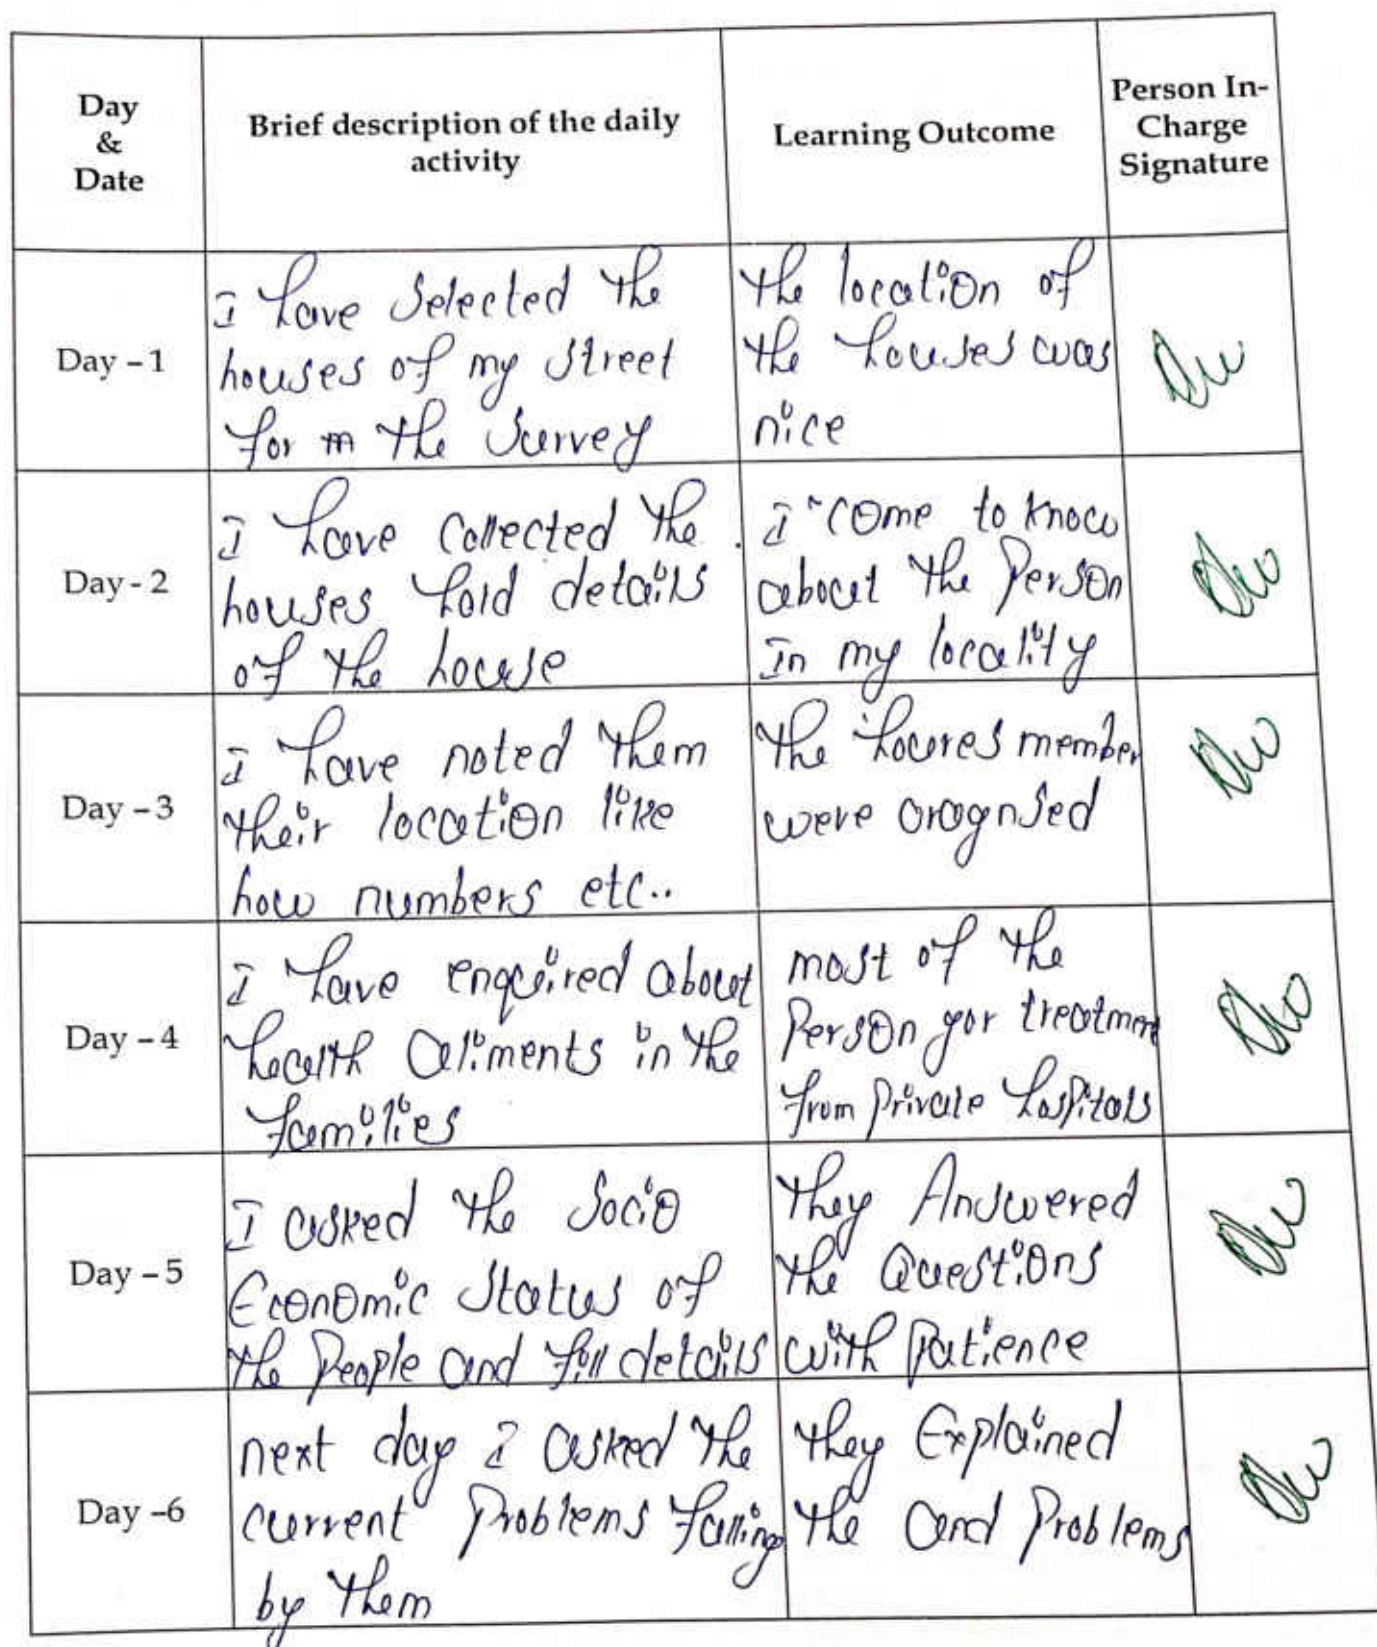 Day
&
Date
Brief description of the daily
activity
Learning Outcome
Person In-
Charge
Signature
Day – 1
I have selected the
houses of my street
for the survey
the location of
the houses was
nice
Day - 2
I have collected the
houses hold details
of the house
I come to know
about the Person
In my locality
Day – 3
I have noted them
their location like
how numbers etc..
the houres member
were orognised
Day – 4
I have enquired about
health ailments in the
families
most of the
Person gor treatment
from private hospitals
Day – 5
I asked the Socio
Economic Status of
the People and fill details
they Answered
the Questions
with patience
Day –6
next day I asked the
current Problems falling
by them
they Explained
the and Problems